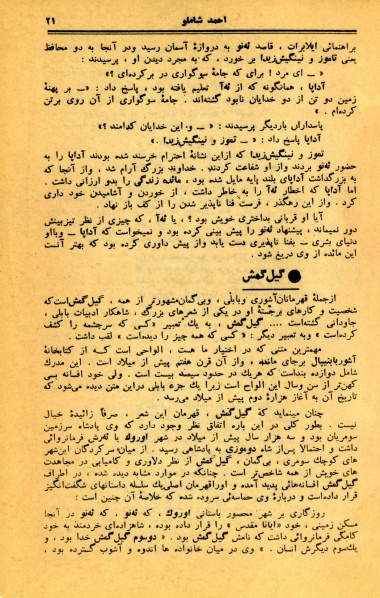 احمد شاملو ۲۱
براهنمائی ایلابرات ، قاصد ئه‌نو به دروازهٔ آسمان رسید ودر آنجا به دو محافظ
یعنی تاموز و نینگیش‌زیدا بر خورد ، که به مجرد دیدن او ، پرسیدند :
« ــ ای مرد ! برای که جامهٔ سوگواری در برکرده‌ای ؟»
آداپا ، همانگونه که از ئه‌آ تعلیم یافته بود ، پاسخ داد : «ــ بر پهنهٔ
زمین دو تن از دو خدایان نابود گشته‌اند . جامهٔ سوگواری از آن روی برتن
کرده‌ام . »
پاسداران باردیگر پرسیدند : « ــ و، این خدایان کدامند ؟»
آداپا پاسخ داد : «ــ تموز و نینگیش‌زیدا »
تموز و نینگیش‌زیدا که ازاین نشانهٔ احترام خرسند شده بودند آداپا را به
حضور ئه‌نو بردند واز او شفاعت کردند . خداوند بزرگ آرام شد ، واز آنجا که
به بزرگداشت آداپای بلند پایه مایل شده بود ، مائده زندگی را بدو ارزانی داشت .
اما آداپا که اخطار ئه‌آ را به خاطر داشت ، از خوردن و آشامیدن خود داری
کرد . واز این رهگذر ، فرصت فنا ناپذیر شدن را از کف باز نهاد .
آیا او قربانی بداختری خویش بود ؟ ، یا ئه‌آ ، که چیزی از نظر تیزبینش
دور نمیماند ، پیشنهاد ئه‌نو را پیش بینی کرده بود و نمیخواست که آداپا ــ وبااو
دنیای بشری ــ بفنا ناپذیری دست یابد واز پیش داوری کرده بود که بهتر آنست
این مائده از وی دریغ شود .
● گیل‌گمش
ازجملهٔ قهرمانان‌آشوری وبابلی ، وبی‌گمان‌مشهورتر از همه ، گیل‌گمش‌است‌که
شخصیت و کارهای برجستهٔ او در یکی از شعرهای بزرگ ، شاهکار ادبیات بابلی ،
جاودانی گشته است .... گیل‌گمش ، به یک تعبیر «کسی که سرچشمه را کشف
کرده‌است » وبه تعبیر دیگر : « کسی که همه چیز را دیده‌است » لقب داشت .
مهمترین متنی که در اختیار ما هست ، الواحی است که از کتابخانهٔ
آشوربانیپال برجای مانده ، واز آن قرن هفتم پیش از میلاد است . این مدرک
شامل دوازده بنداست که هریک در حدود سیصد بیت است . ولی خود افسانه بسی
کهن‌تر از سن وسال این الواح است زیرا یک جزء بابلی دراین متن دیده می‌شود که
تاریخ آن به آغاز هزارهٔ دوم پیش از میلاد می‌رسد .
چنان مینماید که گیل‌گمش ، قهرمان این شعر ، صرفاً زائیدهٔ خیال
نیست . بطور کلی در این باره اتفاق نظر وجود دارد که وی پادشاه سرزمین
سومریان بود و سه هزار سال پیش از میلاد در شهر اوروک یا ئه‌رش فرمانروائی
داشت و احتمالا پس‌از شاه دوموزی به پادشاهی رسید . از میان‌سرکردگان این‌شهر
های کوچک سومری ، بی‌گمان ، گیل‌گمش از نظر دلاوری و کامیابی در مجاهدت
های خویش از همه شاخص‌تر است . چنانکه در موارد مشابه دیده شده ، در اطراف
گیل‌گمش افسانه‌هائی پدید آمده و اوراقهرمان اصلی‌یک سلسله داستانهای شگفت‌انگیز
قرار داده‌است و دربارهٔ وی حماسه‌ئی سروده شده که خلاصهٔ آن چنین است :
روزگاری بر شهر محصور باستانی اوروک، که ئه‌نو ، که ئه‌نو در آنجا
مسکن زمینی ، خود «ایانا مقدس » را قرار داده بوده ، شاهزاده‌ای خردمند به خود
کامگی فرمانروائی داشت که نامش گیل‌گمش بود . « دوسوم گیل‌گمش خدا بود ، و
یک‌سوم دیگرش انسان . » وی در میان خانواده ها اندوه و آشوب گسترده بود ،